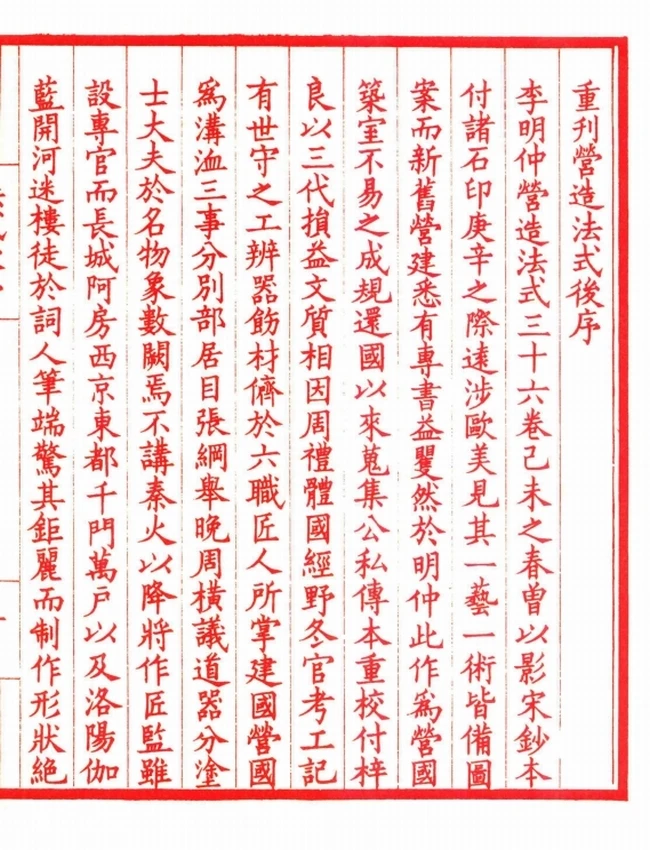 重刊營造法式後序
李明仲營造法式三十六卷己未之春曾以影宋鈔本
付諸石印庚辛之際遠涉歐美見其一藝一術皆備圖
案而新舊營建悉有專書益矍然於明仲此作爲營國
築室不易之成規還國以來蒐集公私傳本重校付梓
良以三代損益文質相因周禮體國經野冬官考工記
有世守之工辨器飭材儕於六職匠人所掌建國營國
爲溝洫三事分別部居目張綱舉晚周橫議道器分塗
士大夫於名物象數闕焉不講秦火以降將作匠監雖
設專官而長城阿房西京東都千門萬戶以及洛陽伽
藍開河迷樓徒於詞人筆端驚其鉅麗而制作形狀絕